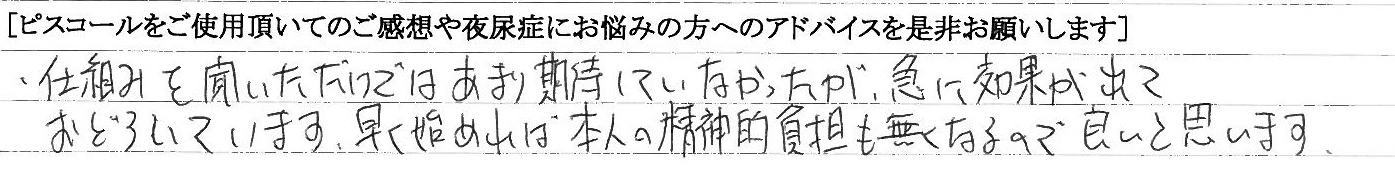 [ピスコールをご使用頂いてのご感想や夜尿症にお悩みの方へのアドバイスを是非お願いします]
・仕組みを聞いただけではあまり期待していなかったが、急に効果が出て
おどろいています、早く始めれば本人の精神的負担も無くなるので良いと思います、